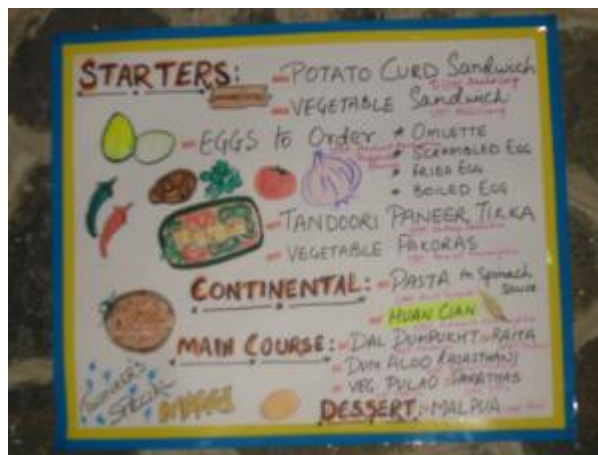 STARTERS: - POTATO CURD Sandwich
- VEGETABLE Sandwich
- EGGS to Order * OMLETTE
* SCRAMBLED EGG
* FRIED EGG
* BOILED EGG
- TANDOORI PANEER TIKKA
- VEGETABLE PAKORAS
CONTINENTAL: - PASTA in Spinach Sauce
- HUAN CIAN
MAIN COURSE: - DAL DUMPUKHT - RAITA
- DUM ALOO RAJASTHANI
- VEG. PULAO - PARATHAS
SPECIAL
DESSERT: - MALPUA